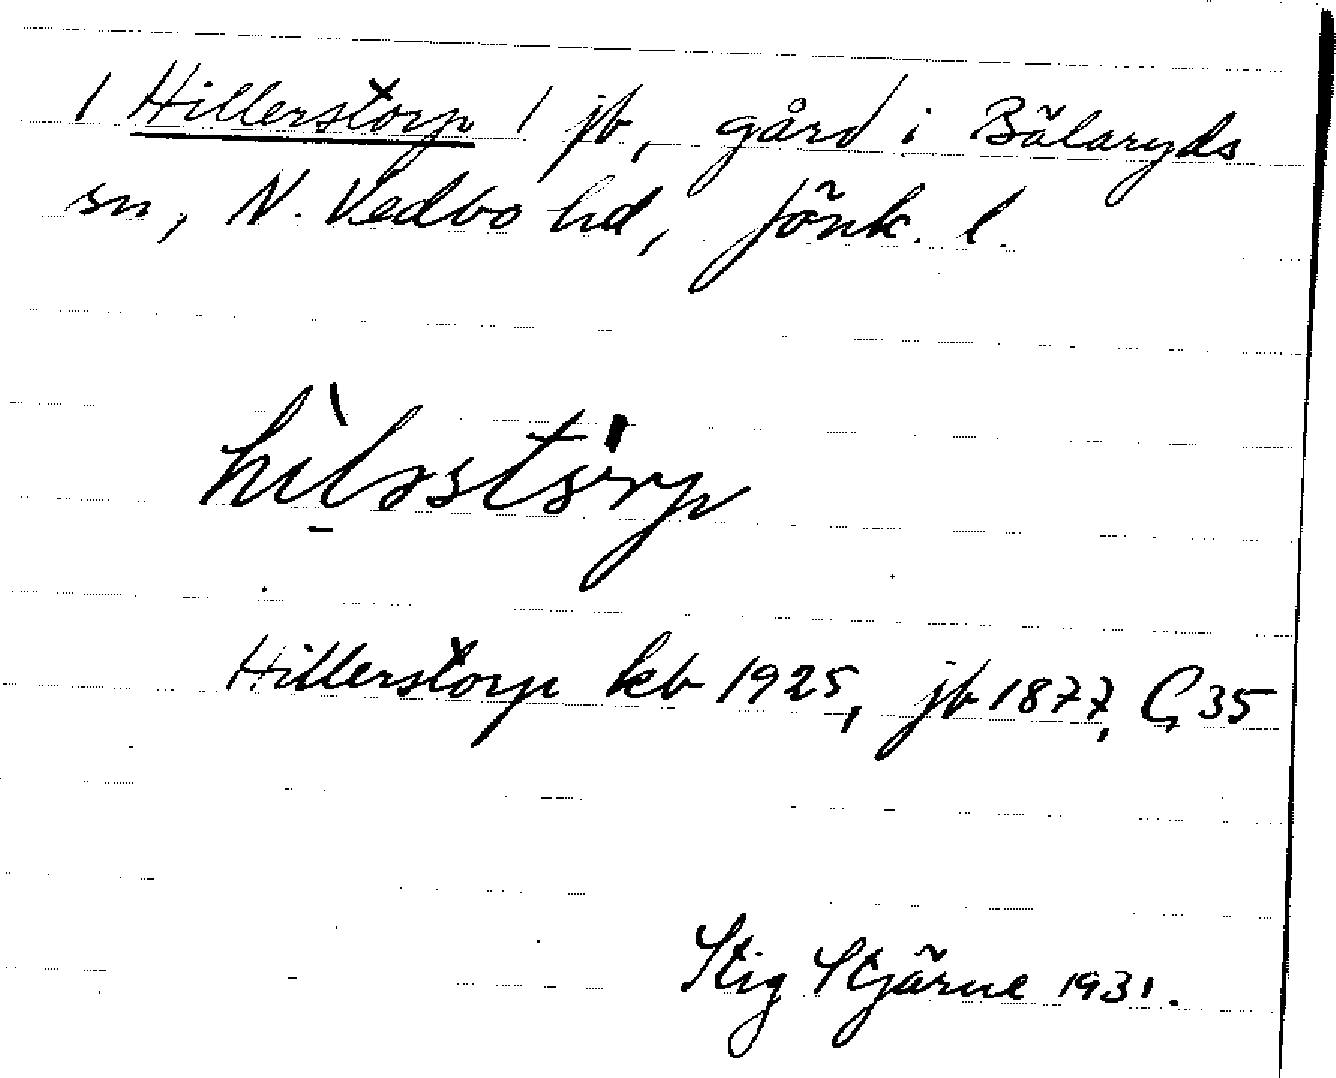 / Hillerstorp / jb, gård i Bälaryds
sn, N. Vedbo hd, Jönk. l.
Hillerstorp kb 1925, jb 1877, C, 35
Stig Stjärne 1931.